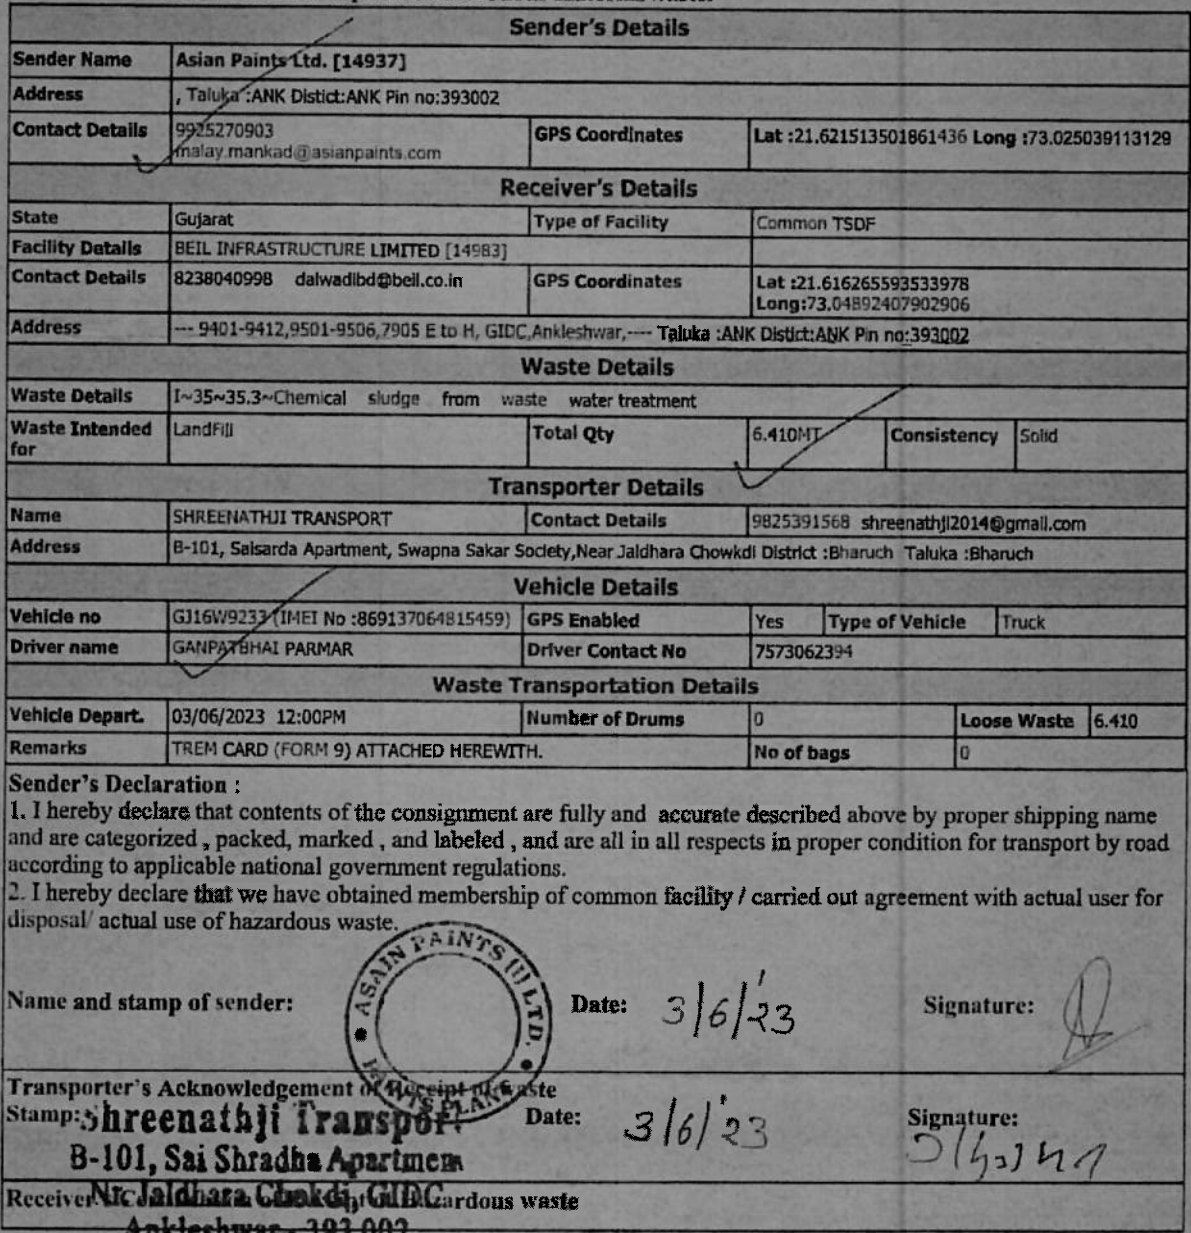 Sender's Details
Sender Name Asian Paints Ltd. [14937]
Address , Taluka :ANK Distict:ANK Pin no:393002
Contact Details 9925270903 GPS Coordinates Lat :21.621513501861436 Long :73.025039113129
malay.mankad@asianpaints.com
Receiver's Details
State Gujarat Type of Facility Common TSDF
Facility Details BEIL INFRASTRUCTURE LIMITED [14983]
Contact Details 8238040998 dalwadibd@beil.co.in GPS Coordinates Lat :21.616265593533978
Long:73.04892407902906
Address --- 9401-9412,9501-9506,7905 E to H, GIDC,Ankleshwar,---- Taluka :ANK Distict:ANK Pin no:393002
Waste Details
Waste Details I~35~35.3~Chemical sludge from waste water treatment
Waste Intended for LandFill Total Qty 6.410MT Consistency Solid
Transporter Details
Name SHREENATHJI TRANSPORT Contact Details 9825391568 shreenathji2014@gmail.com
Address B-101, Saisarda Apartment, Swapna Sakar Society,Near Jaldhara Chowkdi District :Bharuch Taluka :Bharuch
Vehicle Details
Vehicle no GJ16W9233 (IMEI No :869137064815459) GPS Enabled Yes Type of Vehicle Truck
Driver name GANPATBHAI PARMAR Driver Contact No 7573062394
Waste Transportation Details
Vehicle Depart. 03/06/2023 12:00PM Number of Drums 0 Loose Waste 6.410
Remarks TREM CARD (FORM 9) ATTACHED HEREWITH. No of bags 0
Sender's Declaration :
1. I hereby declare that contents of the consignment are fully and accurate described above by proper shipping name
and are categorized , packed, marked , and labeled , and are all in all respects in proper condition for transport by road
according to applicable national government regulations.
2. I hereby declare that we have obtained membership of common facility / carried out agreement with actual user for
disposal/ actual use of hazardous waste.
ASAIN PAINTS (I) LTD.
Name and stamp of sender: Date: 3/6/'23 Signature:
Transporter's Acknowledgement of Receipt of waste
Stamp: Shreenathji Transport Date: 3/6/'23 Signature:
B-101, Sai Shradha Apartmem
Nr. Jaldhara Chokdi, GIDC
Receiver hazardous waste
Ankleshwar - 393 002